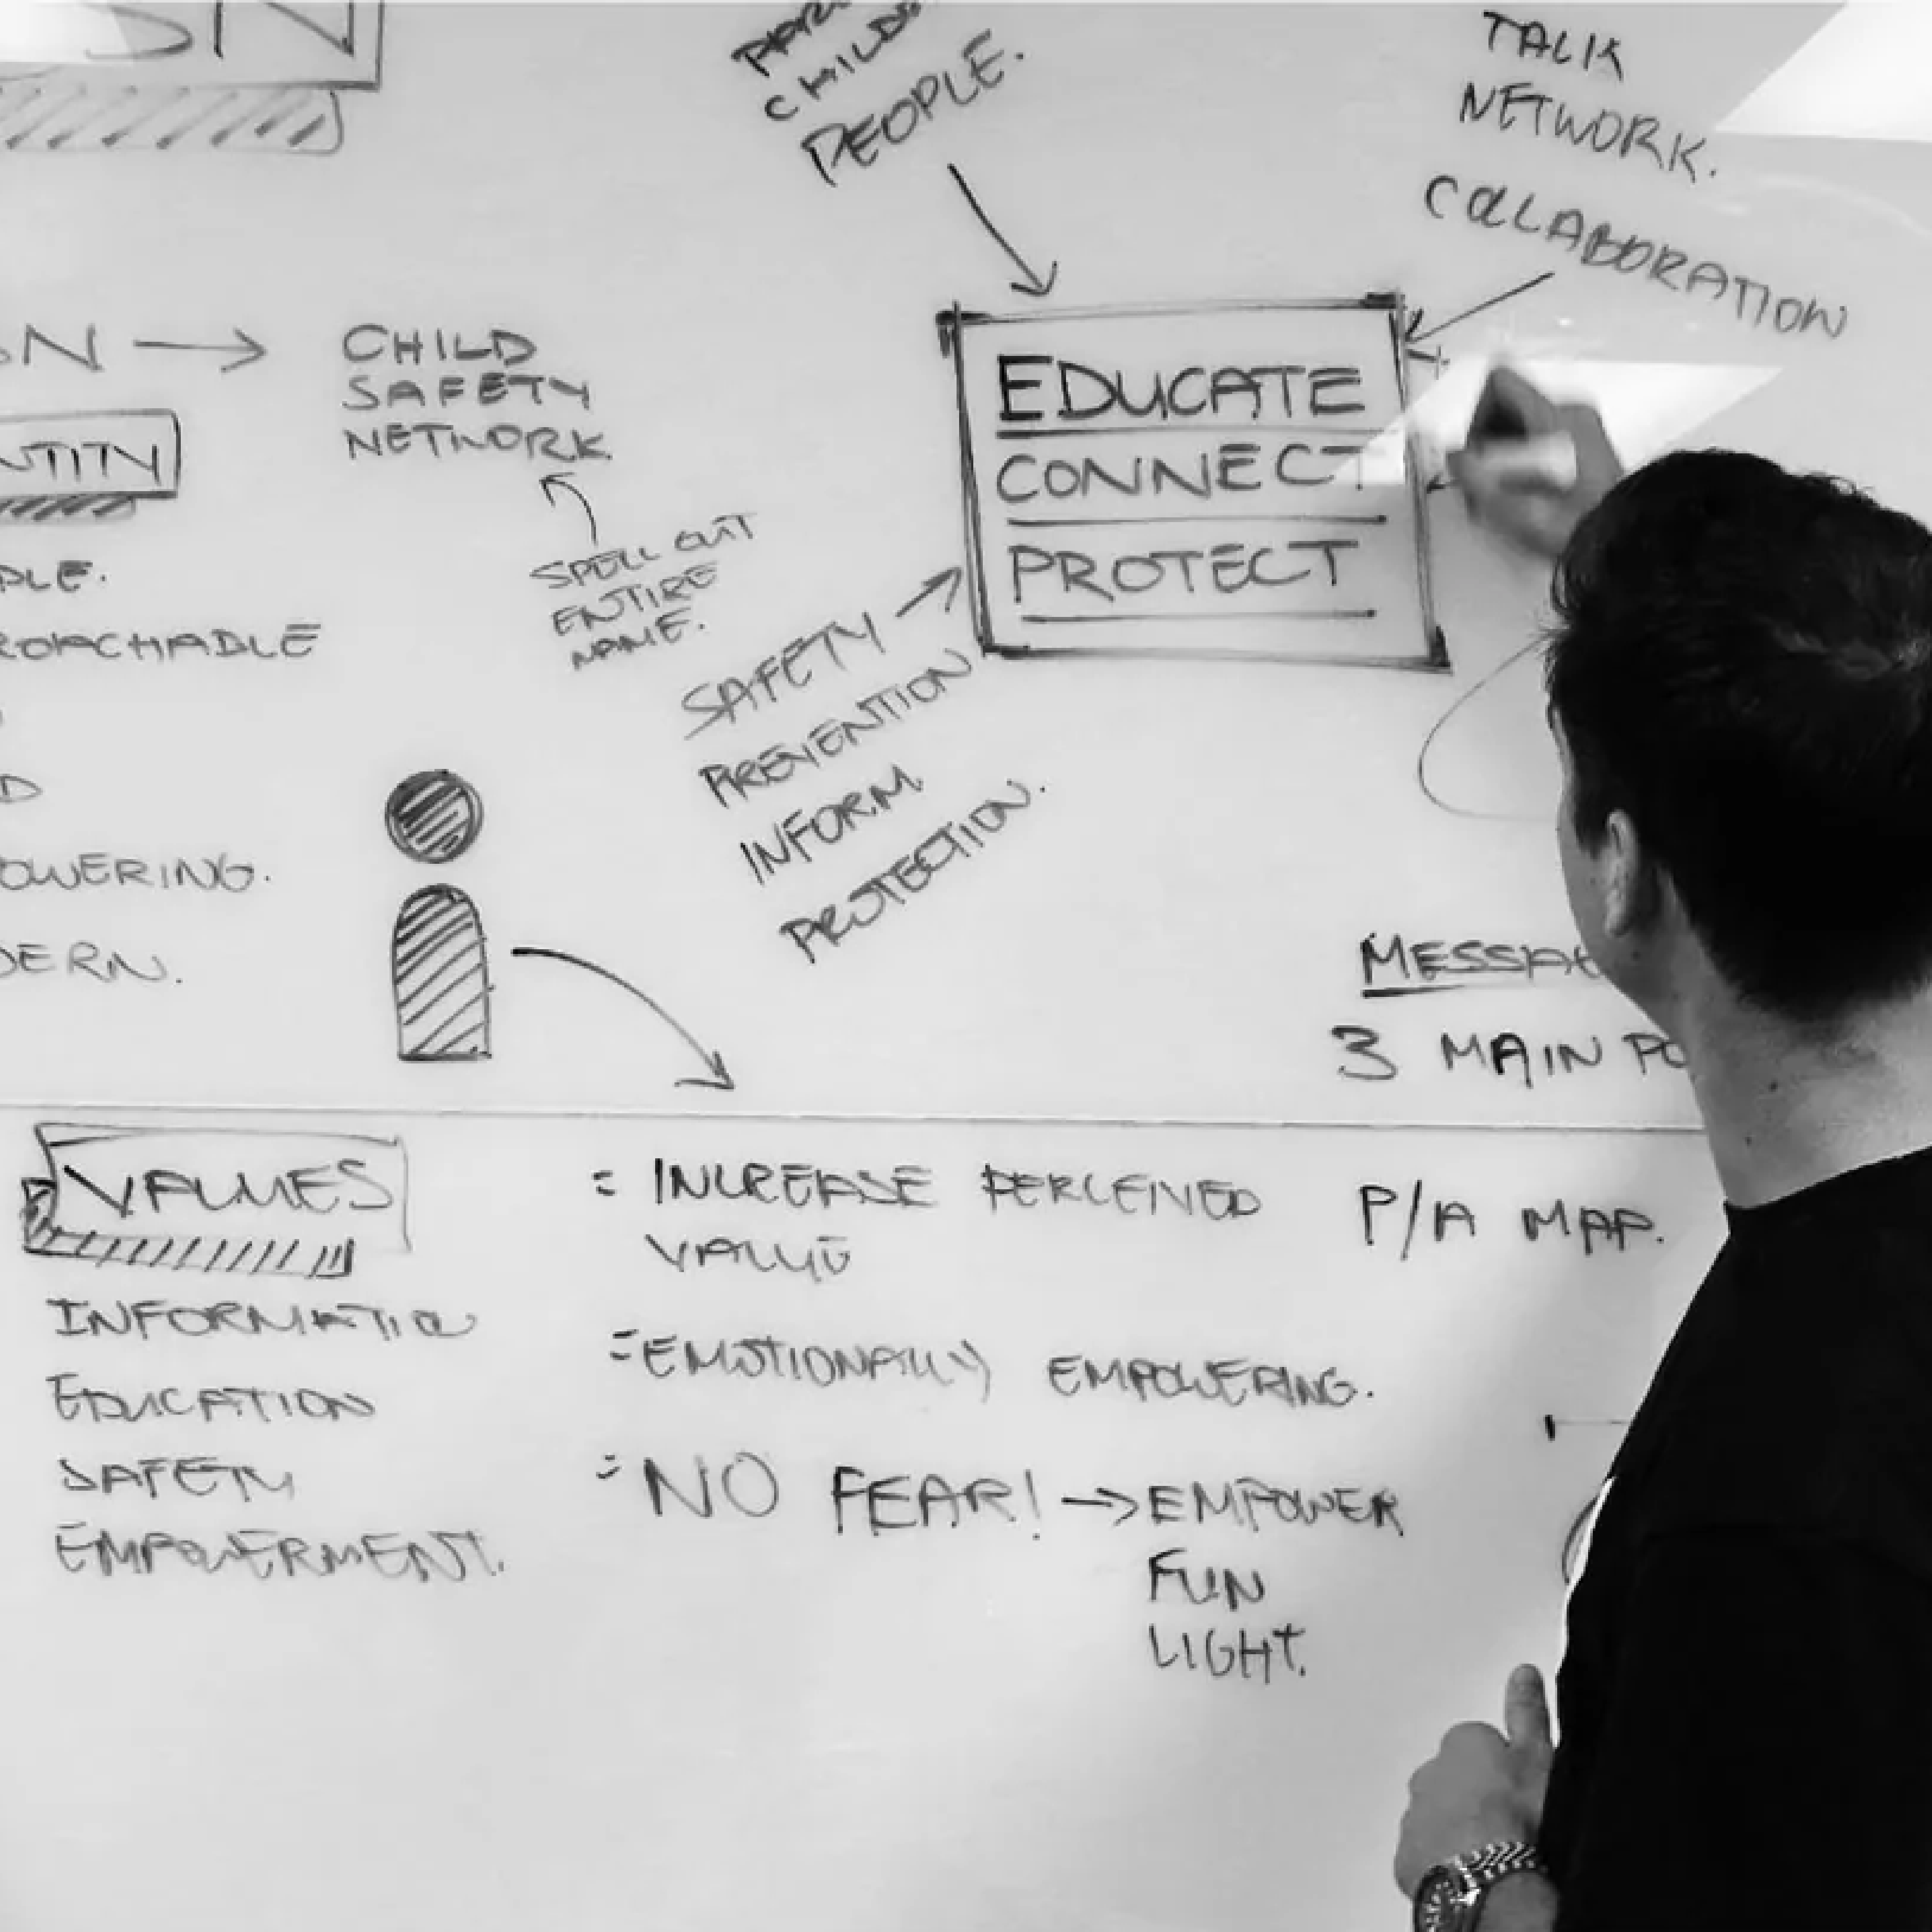 SN
CHILD
PEOPLE.
TALK
NETWORK.
COLLABORATION
SN → CHILD
SAFETY
NETWORK.
SPELL OUT
ENTIRE
NAME.
NTITY
PLE.
ROACHABLE
D
OWERING.
DERN.
EDUCATE
CONNECT
PROTECT
SAFETY
PREVENTION
INFORM.
PROTECTION.
MESSAG
3 MAIN PO
VALUES
INFORMATIO
EDUCATION
SAFETY
EMPOWERMENT.
= INCREASE PERCEIVED
VALUE
= EMOTIONALLY EMPOWERING.
= NO FEAR! → EMPOWER
FUN
LIGHT.
P/A MAP.